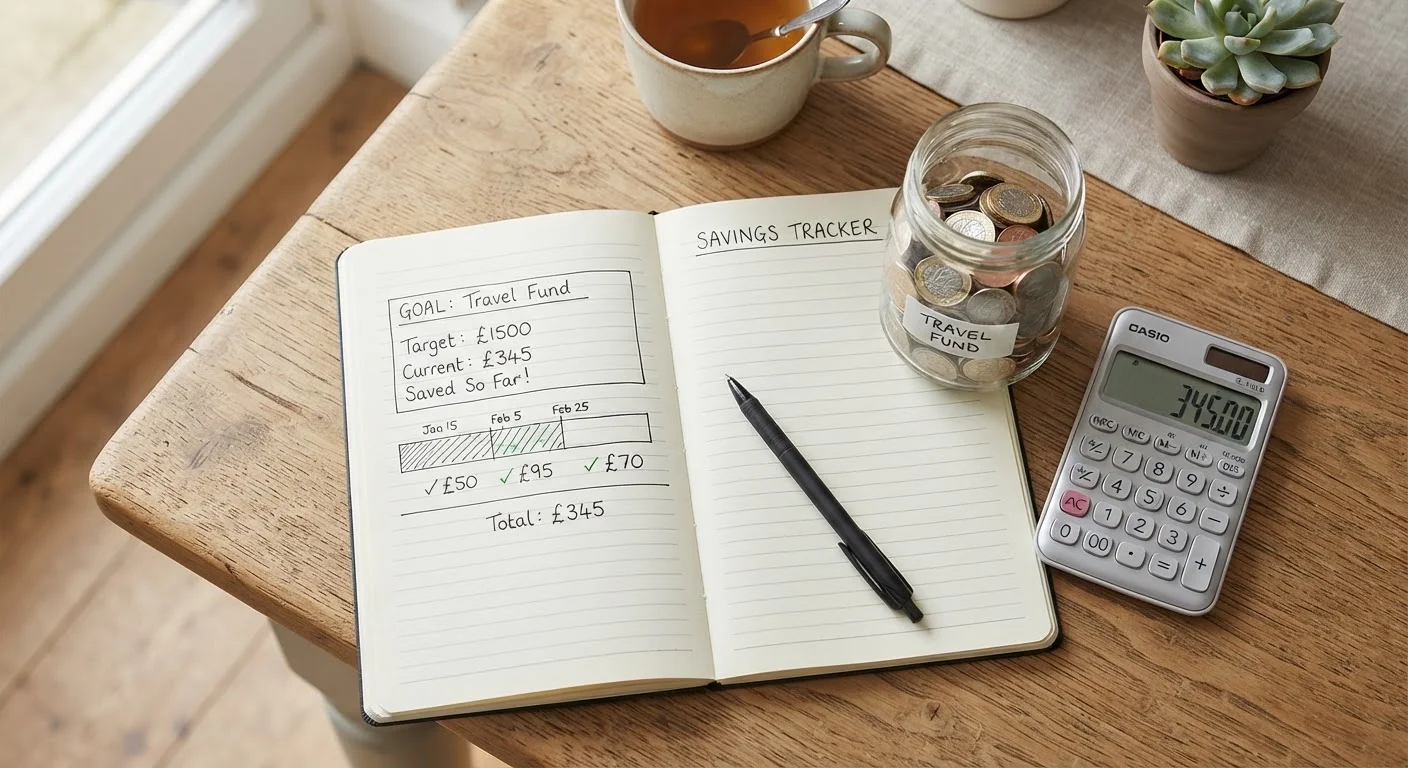 GOAL: Travel Fund
Target: £1500
Current: £345
Saved So Far!
Jan 15 Feb 5 Feb 25
✓£50 ✓£95 ✓£70
Total: £345
SAVINGS TRACKER
TRAVEL
FUND
CASIO
345.00
MC
7 8 9 ÷
4 5 6 −
AC 1 2 3 +
0 00 · =